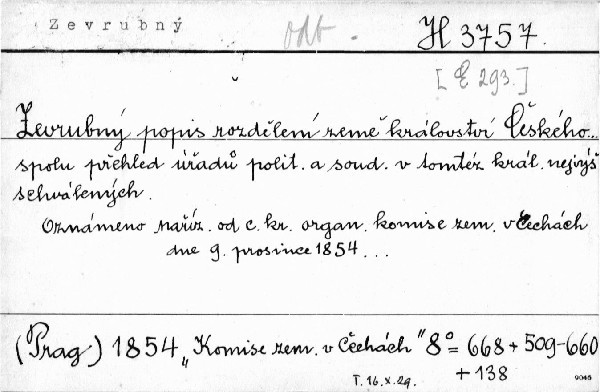 Zevrubný
odb.
H 3757.
[E 293.]
Zevrubný popis rozdělení země království Českého...
spolu přehled úřadů polit. a soud. v tomtéz král. nejvýš
schválených.
Oznámeno naříz. od c. kr. organ. komise zem. v Čechách
dne 9. prosince 1854...
(Prag) 1854 „Komise zem. v Čechách" 8° = 668 + 509-660
+ 138
T. 16.X.29.
9045